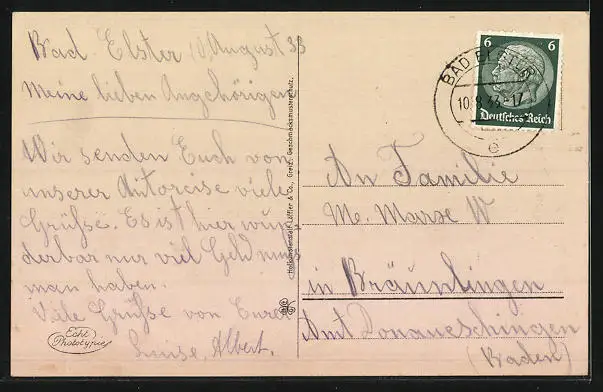 Bad Elster 10 August 33
Meine lieben Angehörigen
Wir senden Euch von
unserer Autoreise viele
Grüsse. Es ist hier wun-
derbar nur viel Geld muss
man haben.
Viele Grüsse von Eurer
Luise, Albert.
Echt
Phototypie
Löffler & Co., Greiz. Geschmacksmusterschutz.
6 6
Deutsches Reich
BAD ELSTER
10.8.33.-17
e
An Familie
Me. Marxe W
in Bräunlingen
Amt Donaueschingen
(Baden)